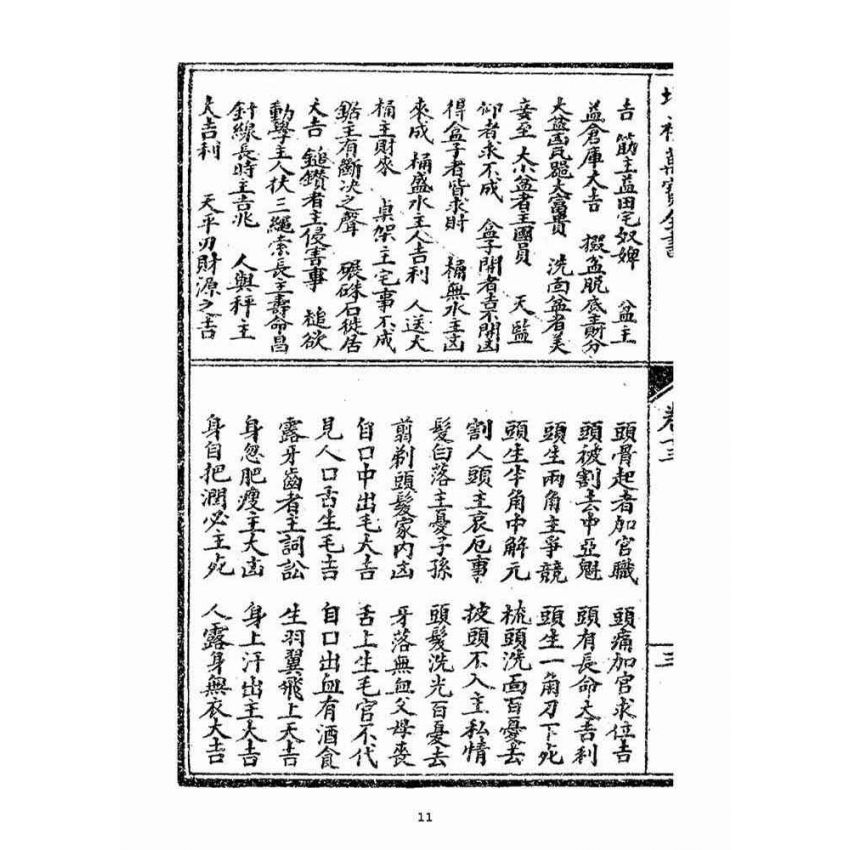 萬寶全書
卷十三
三
吉 筋主益田宅奴婢 盆主
益倉庫大吉 掇盆脫底主財分
大盆出凶 大富貴 洗面盆者美
妾至 大小盆者主國員 天監
仰者求不成 盒子開者吉不開凶
得盒子者皆求財 桶無水主凶
來成 桶盛水主人吉利 人送大
桶主財來 桌架主宅事不成
鋸主有斷決之聲 碾硃石徙居
大吉 鎚鑽者主侵害事 槌欲
動擧主人扶三 繩索長主壽命昌
針線長時主吉兆 人與秤主
大吉利 天平刃財源之吉
頭骨起者加官職 頭痛加官求位吉
頭被割去中亞魁 頭有長命大吉利
頭生兩角主爭競 頭生一角刀下死
頭生半角中解元 梳頭洗面百憂去
割人頭主哀厄事 披頭不入主私情
髮白落主憂子孫 頭髮洗光百憂去
剪剃頭髮家內凶 牙落無血父母喪
自口中出毛大吉 舌上生毛官不代
見人口舌生毛吉 自口出血有酒食
露牙齒者主詞訟 生羽翼飛上天吉
身忽肥瘦主大凶 身上汗出主大吉
身自把潤必主死 人露身無衣大吉
11